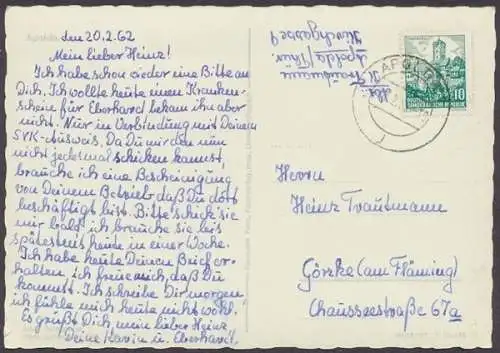 den 20.2.62
Mein lieber Heinz!
Ich habe schon wieder eine Bitte an
Dich. Ich wollte heute einen Kranken-
schein für Eberhard bekam ihn aber
nicht. Nur in Verbindung mit Deinem
SVK-Ausweis. Da Du mir den nun
nicht jedesmal schicken kannst,
brauche ich eine Bescheinigung
von Deinem Betrieb daß Du dort
beschäftigt bist. Bitte schick sie
mir bald, ich brauche sie bis
spätestens heute in einer Woche.
Ich habe heute Deinen Brief er-
halten, ich freue mich, daß Du
kommst. Ich schreibe Dir morgen
ich fühle mich heute nicht wohl.
Es grüßt Dich, mein lieber Heinz
Deine Karin u. Eberhard.
Abs.
K. Trautmann
Apolda/Thür
Kirchgasse 9
APOLDA
10
DEUTSCHE DEMOKRATISCHE REPUBLIK
Herrn
Heinz Trautmann
Görzke (am Fläming)
Chausseestraße 67a